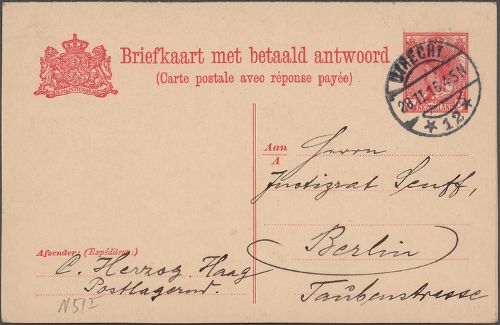 Briefkaart met betaald antwoord
(Carte postale avec réponse payée)
UTRECHT
28.11.16.4-5N
*12*
NEDERLAND
Aan
A
Herrn
Justizrat Senff,
Berlin
Taubenstrasse
Afzender: (Expéditeur:)
C. Herzog. Haag
Postlagernd.
N51I